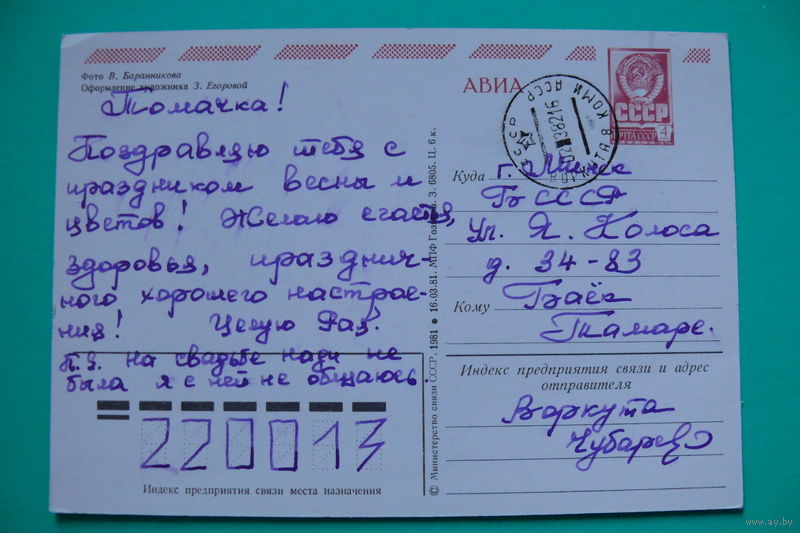 Фото В. Баранникова
Оформление художника З. Егоровой
Томачка!
Поздравляю тебя с
праздником весны и
цветов! Желаю счастья,
здоровья, празднич-
ного хорошего настрое-
ния! Целую Раз.
П.З. на свадьбе нади не
была я с ней не общаюсь.
220013
Индекс предприятия связи места назначения
© Министерство связи СССР, 1981 • 16.03.81. МПФ Гознака. З. 6805. Ц. 6 к.
АВИА
СССР
ПОЧТА СССР 4
ВОРКУТА 8 КОМИ АССР
Куда г. Минск
БССССР
ул. Я. Колоса
д. 34-83
Кому Баек
Тамаре.
Индекс предприятия связи и адрес
отправителя
Воркута
www.ay.by